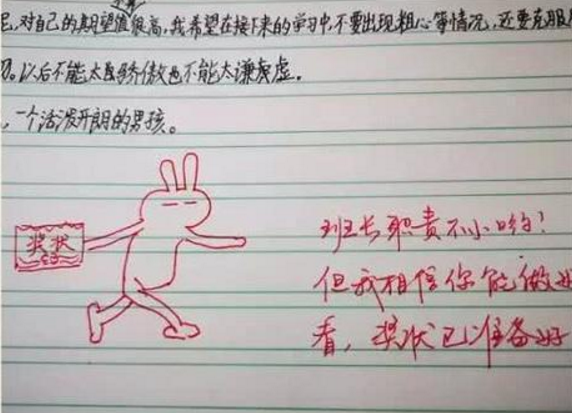 对自己的期望值很高,我希望在接下来的学习中,不要出现粗心等情况,还要克服
以后不能太骄傲也不能太谦虚。
一个活泼开朗的男孩。
奖状
班长职责不小哟!
但我相信你能做
看,奖状已准备好